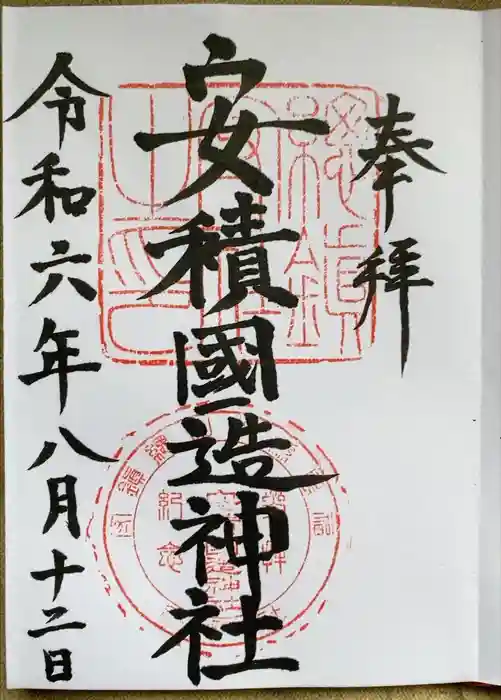 奉拝
安積國造神社
令和六年八月十二日